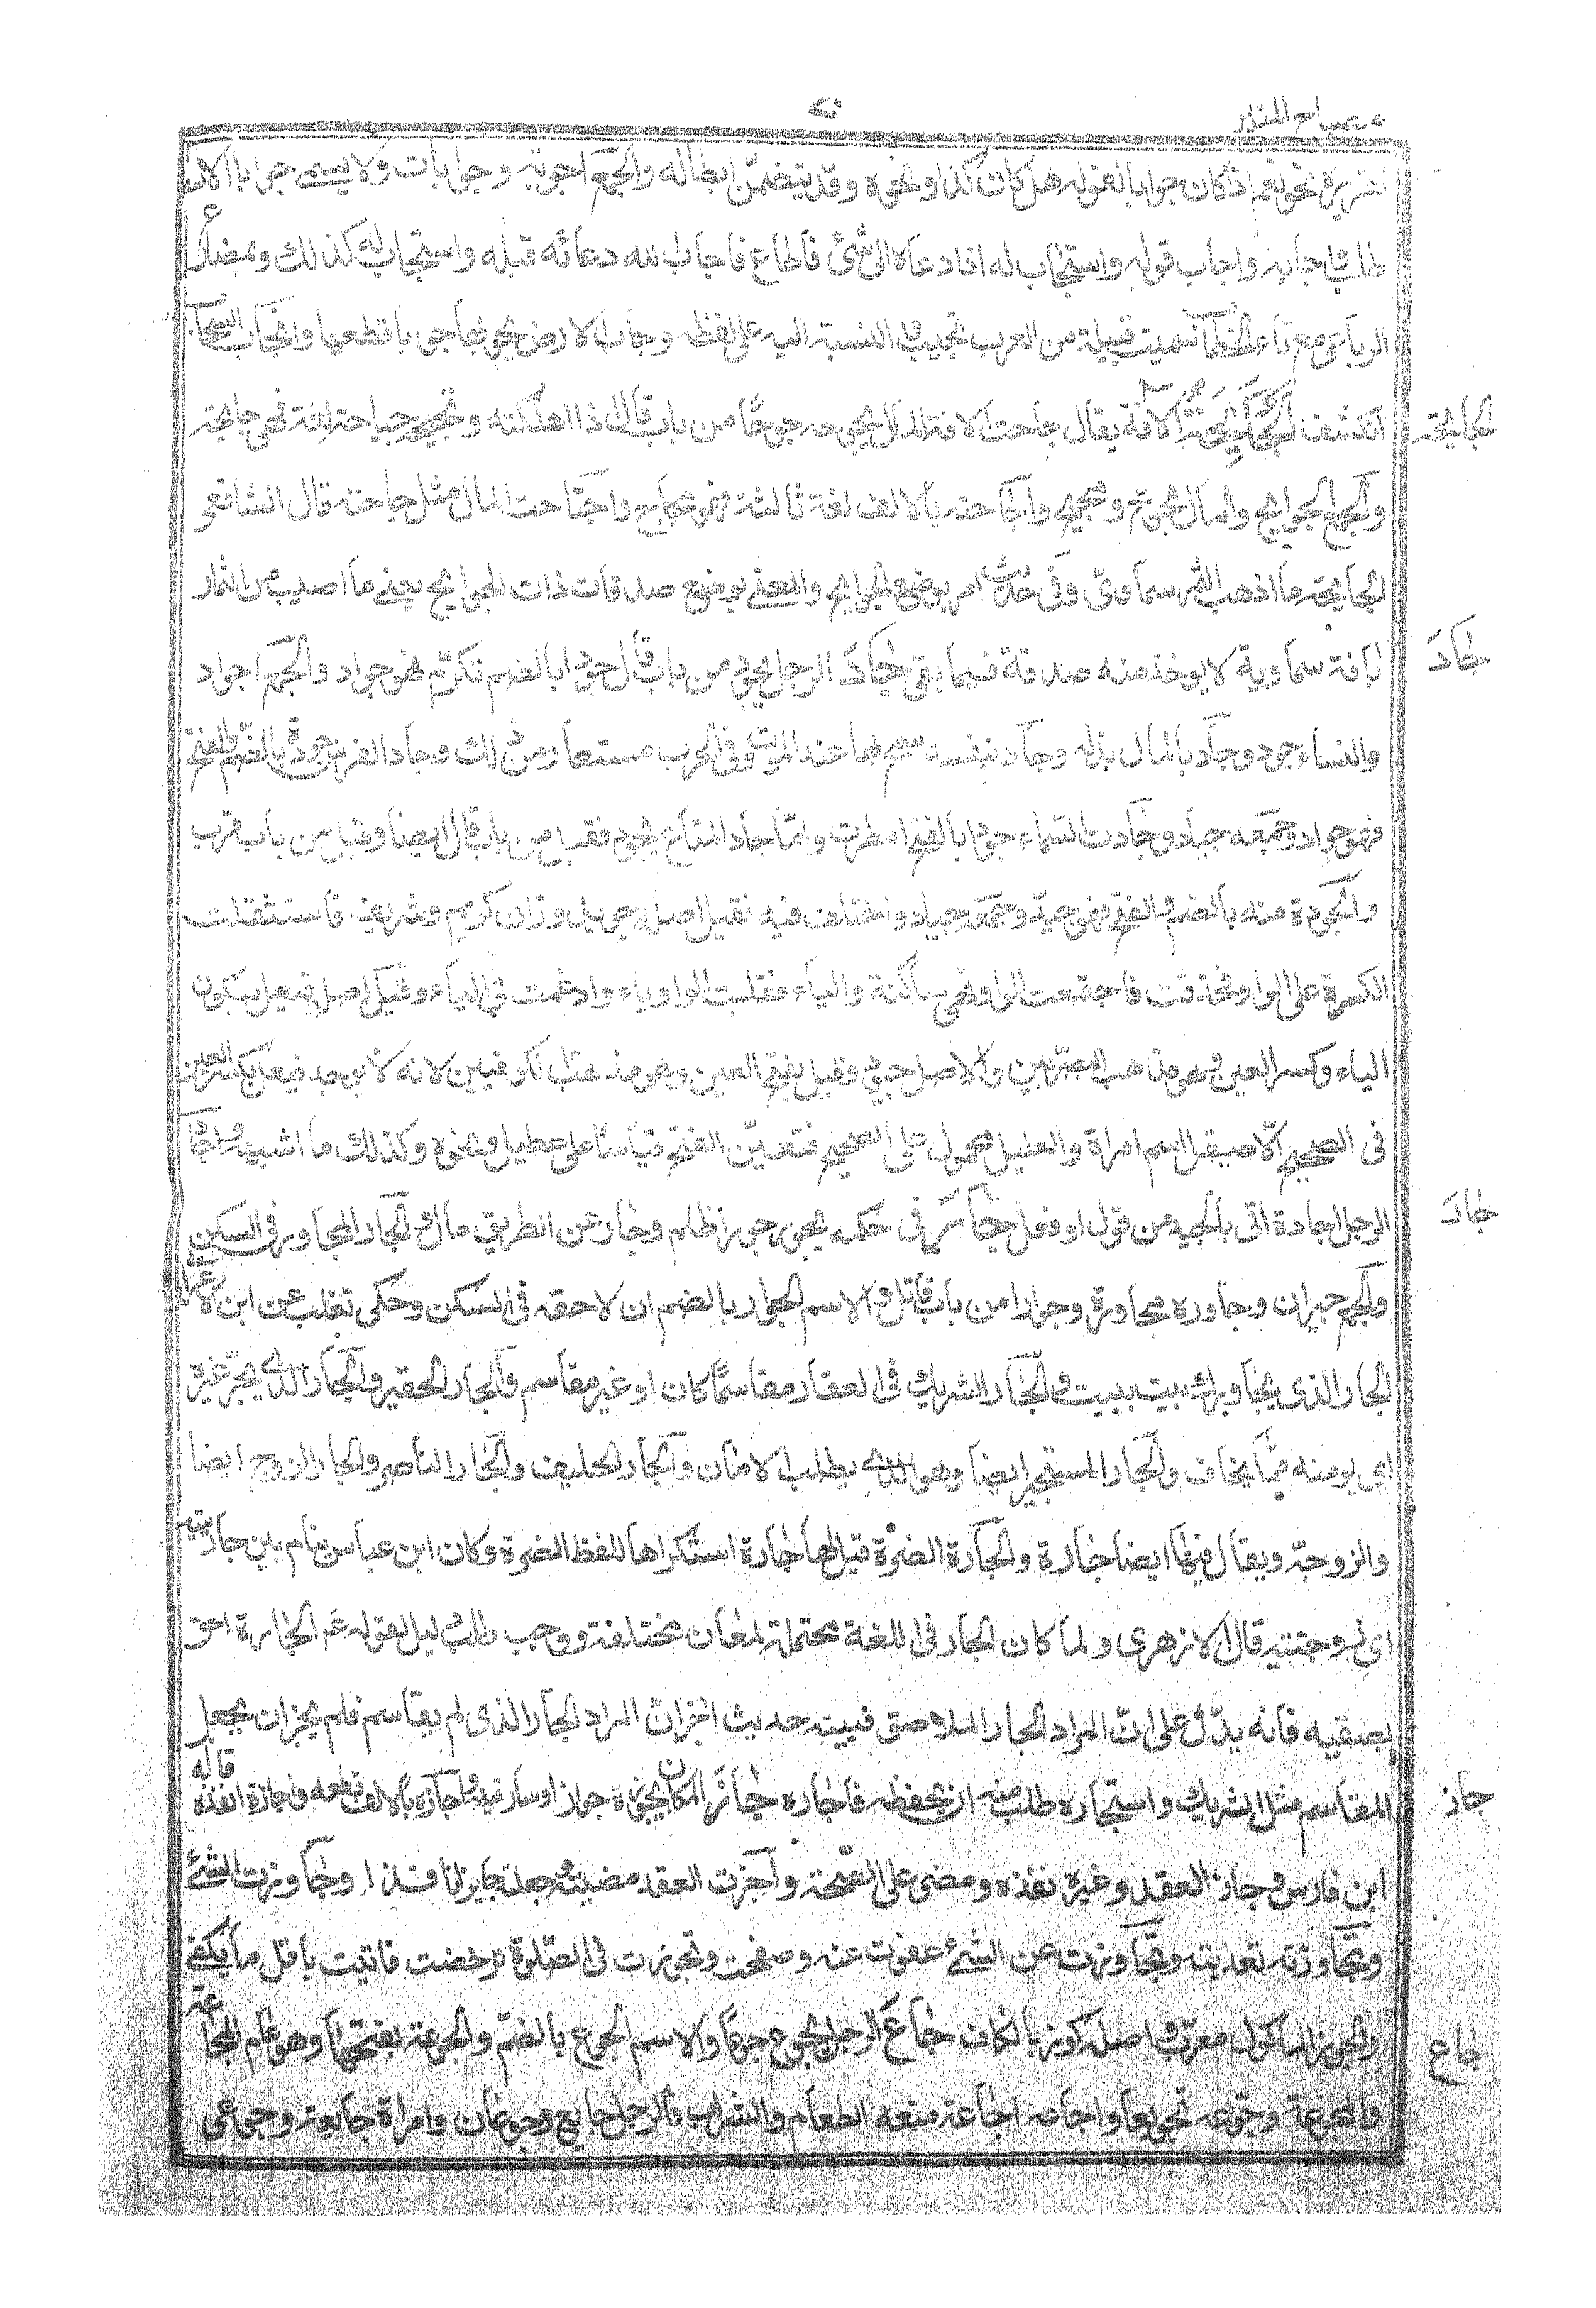 مصباح المنير
تقريره نحو نعم اذا كان جوابا لقوله هل كان كذا ونحوه وقد يتضمن ابطاله والجمع اجوبة وجوابات ولا يسمى جوابا الا بعد
طلب واجابه واجاب قوله واستجاب له اذا دعاه الى شئ فاطاع واجاب الله دعائه قبله واستجاب له كذلك وبمضارع
الرباعى مع تاء الخطاب سميت قبيلة من العرب تجيب والنسبة اليه على لفظه وجاب الارض يجوبها جوبا قطعها وانجاب السحاب
الجائحة
انكشف الجائحة الآفة يقال جاحت الآفة المال يجوحه جوحا من باب قال اذا اهلكته وتجيحه جياحة لغة فهى جايحة
والجمع الجوايح والمال مجوح ومجيح واجاحته بالالف لغة ثالثة فهو مجاح واجتاحت المال مثل جاحته قال الشافعى
الجايحة ما اذهب الثمر سماوى وفى حديث امر بوضع الجوايح والمعنى بوضع صدقات ذات الجوايح يعنى ما اصيب من الثمار
جاد
بافة سماوية لا يوخذ منه صدقة فيما بقى جاد الرجل يجود من باب قال جودا بالضم تكرم فهو جواد والجمع اجواد
والنساء جود وجاد بالمال بذله وجاد بنفسه سمح بها عند الموت وفى الحرب مستعار من ذلك وجاد الفرس جودة بالضم والفتح
فهو جواد وجمعه جياد وجادت السماء جودا بالفتح امطرت واما جاد المتاع يجود فقيل من باب قال ايضا وقيل من باب قرب
والجودة منه بالضم والفتح فهو جيد وجمعه جياد واختلف فيه فقيل اصله جويد وزان كريم وشريف فاستثقلت
الكسرة على الواو فحذفت فاجتمعت الواو وهى ساكنة والياء فقلبت الواو ياء وادغمت فى الياء وقيل اصله فيعل بسكون
الياء وكسر العين وهو مذهب البصريين والاصل جيود وقيل بفتح العين وهو مذهب الكوفيين لانه لا يوجد فيعل بكسر العين
فى الصحيح الا صيقل اسم امراة والعليل محمول على الصحيح فتعين الفتح قياسا على عيطل ونحوه وكذلك ما اشبهه واجاد
جار
الرجل اجادة اتى بالجيد من قول او فعل جار فى حكمه يجور جورا ظلم وجار عن الطريق مال والجار المجاور فى السكن
والجمع جيران وجاوره مجاورة وجوارا من باب قاتل والاسم الجوار بالضم ان لاصقه فى السكن وحكى ثعلب عن ابن الاعرابى
الجار الذى يجاورك بيت بيت والجار الشريك فى العقار مقاسما كان او غير مقاسم والجار الخفير والجار الذى يجير غيره
اى يومنه مما يخاف والجار المستجير ايضا وهو الذى يطلب الامان والجار الحليف والجار الناصر والجار الزوج ايضا
والزوجة ويقال فيها ايضا جارة والجارة الضرة قيل لها جارة استكراها للفظ الضرة وكان ابن عباس ينام بين جارتيه
اى زوجتيه قال الازهرى ولما كان الجار فى اللغة محتملة لمعان مختلفة ووجب طلب دليل لقوله عم الجار احق
بصقبه فانه يدل على ان المراد الجار الملاصق فبينه حديث اخر ان المراد الجار الذى لم يقاسم فلم يجز ان يجعل
جاز
المقاسم مثل الشريك واستجاره طلب منه ان يحفظه فاجاره جاز المكان يجوزه جوازا وسار فيه واجازه بالالف قطعه واجازة انفذه قاله
ابن فارس وجاز العقد وغيره نفذه ومضى على الصحة واجزت العقد مضيته وجعلته جايزا نافذا وجاوزت الشئ
وتجاوزته تعديته وتجاوزت عن الشئ عفوت عنه وصفحت وتجوزت فى الصلوة ترخصت فاتيت باقل ما يكفى
جاع
والجوز الماكول معرب واصله كوز بالكاف جاع الرجل يجوع جوعا والاسم الجوع بالضم والجوعة بفتحها وهو عام المجاعة
والمجوعة وجوعه تجويعا واجاعه اجاعة منعه الطعام والشراب فالرجل جايع وجوعان وامراة جايعة وجوعى